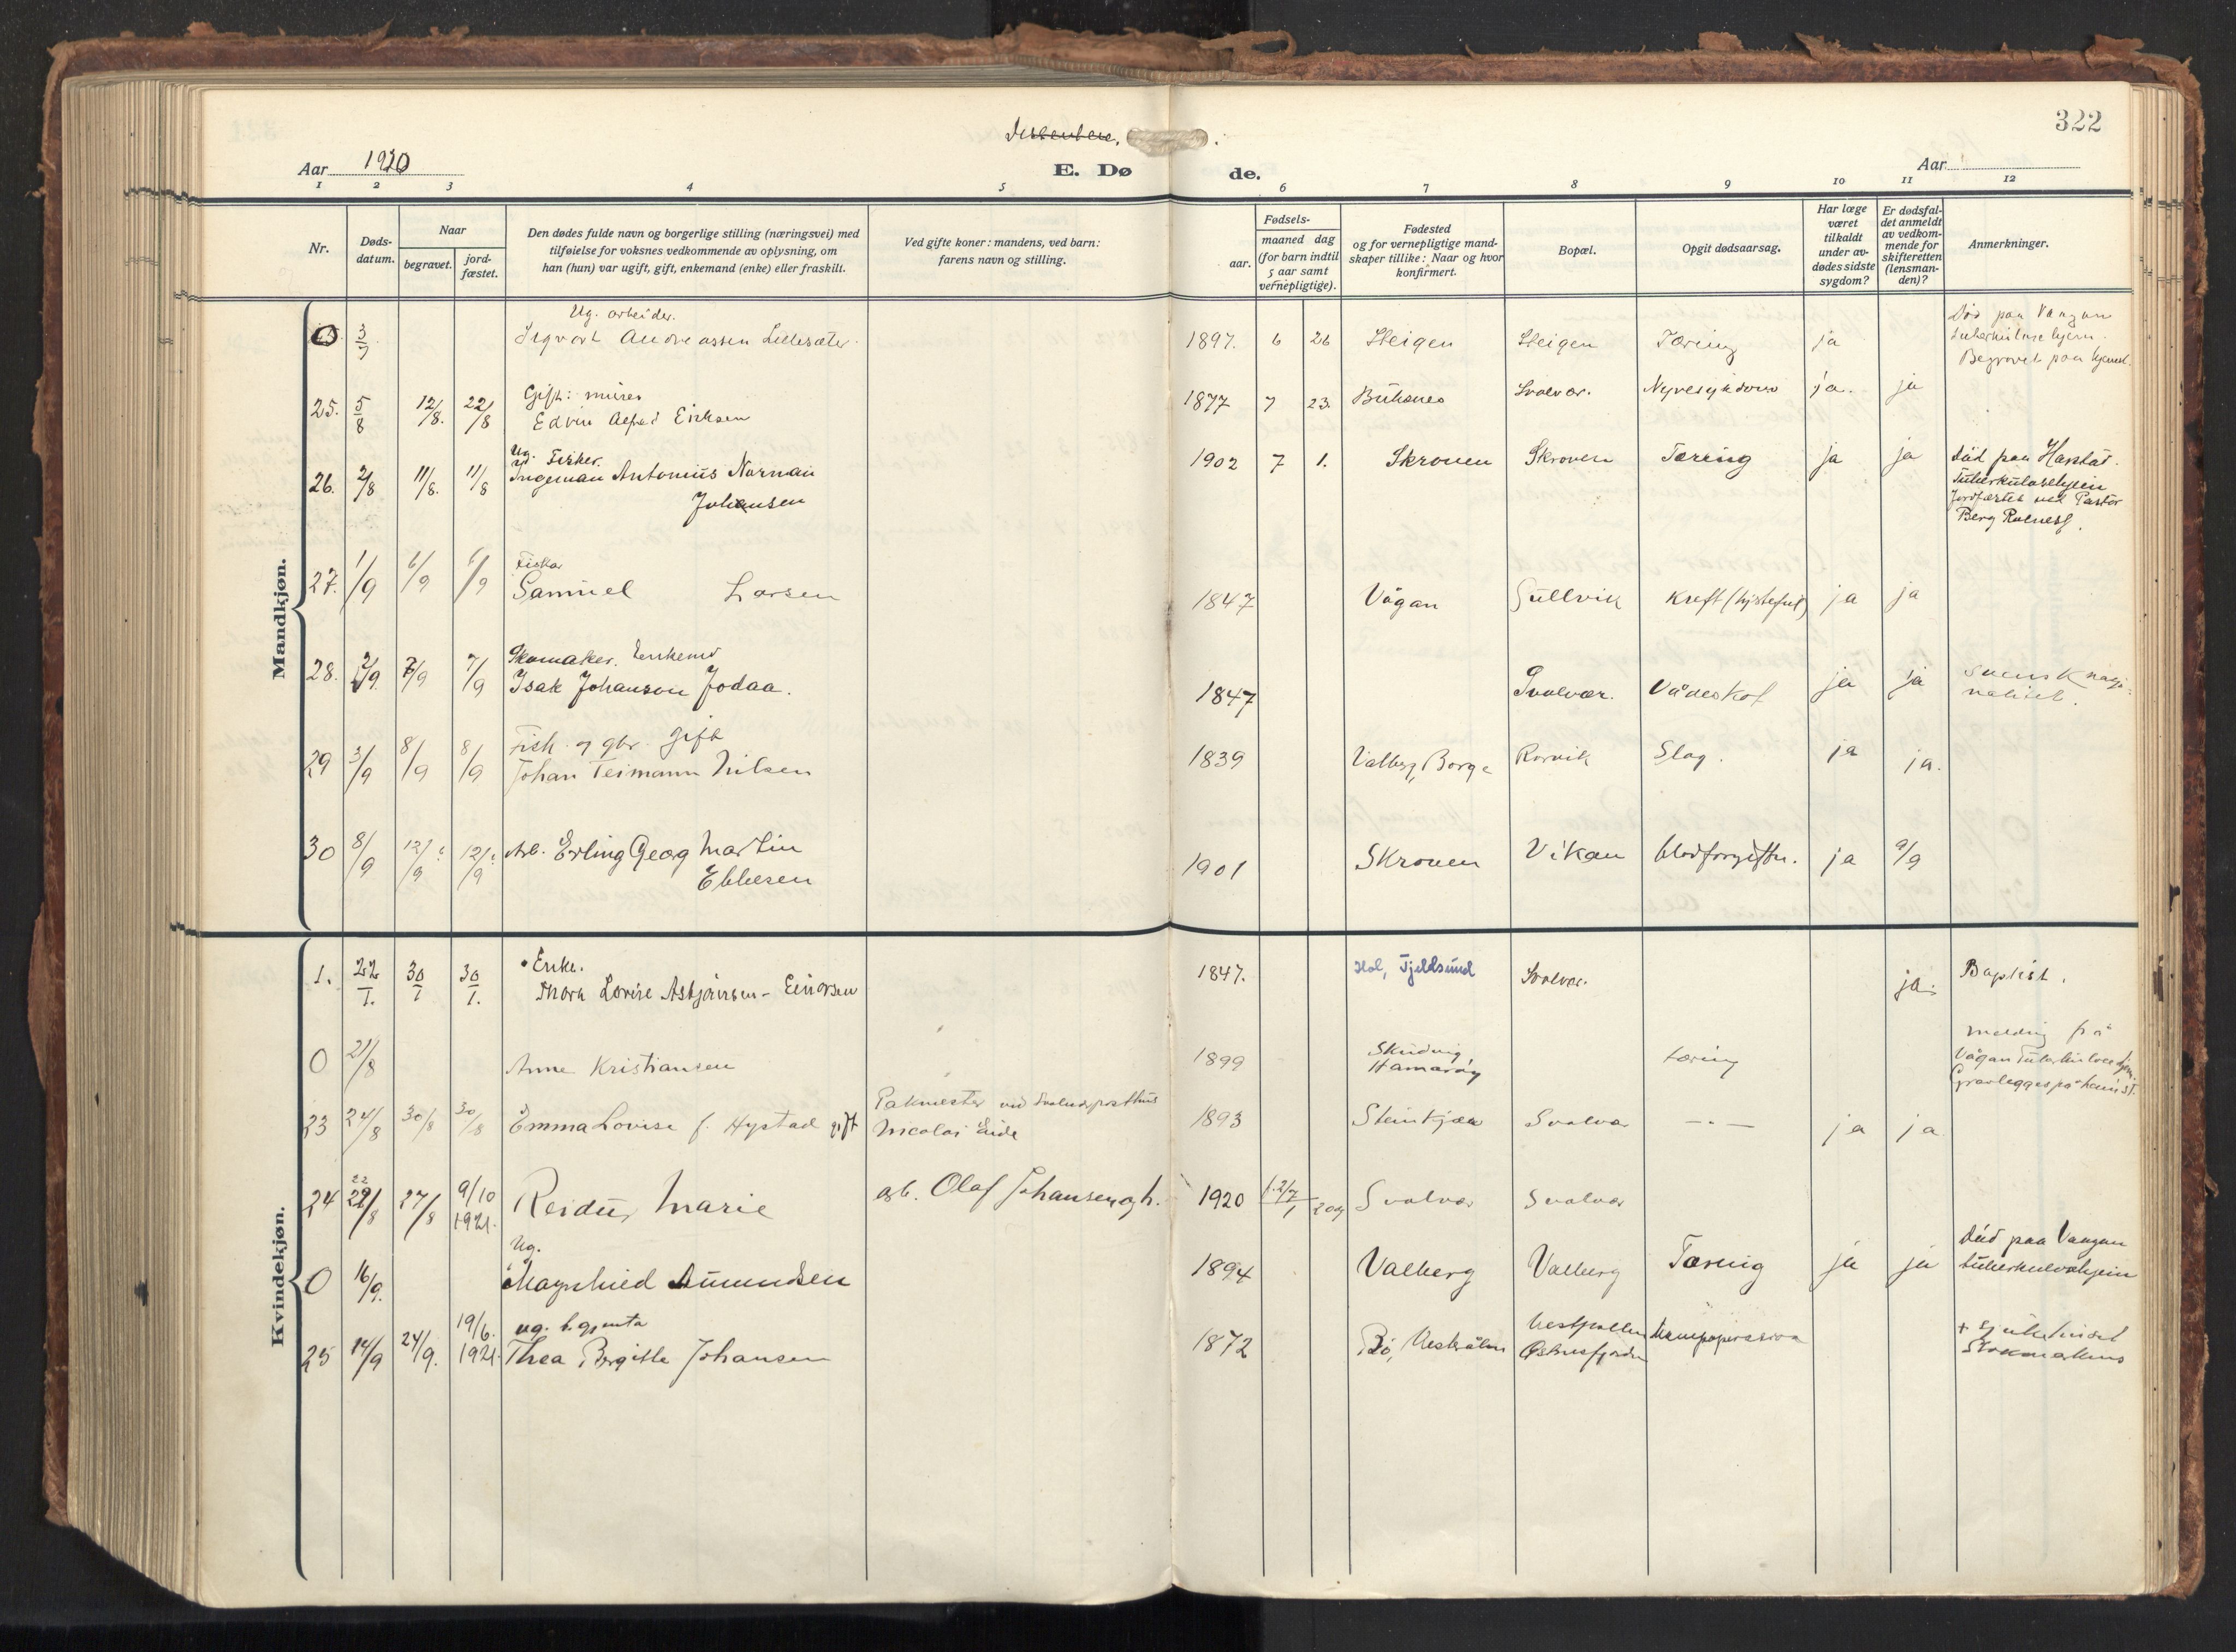 322
Aar 1920
E. Døde.
Aar
1 2 3 4 5 6 7 8 9 10 11 12
Nr.
Døds-
datum.
Naar
begravet.
jord-
fæstet.
Den dødes fulde navn og borgerlige stilling (næringsvei) med
tilføielse for voksnes vedkommende av oplysning, om
han (hun) var ugift, gift, enkemand (enke) eller fraskilt.
Ved gifte koner: mandens, ved barn:
farens navn og stilling.
Fødsels-
aar.
maaned dag
(for barn indtil
5 aar samt
vernepligtige).
Fødested
og for vernepligtige mand-
skaper tillike: Naar og hvor
konfirmert.
Bopæl.
Opgit dødsaarsag.
Har læge
været
tilkaldt
under av-
dødes sidste
sygdom?
Er dødsfal-
det anmeldt
av vedkom-
mende for
skifteretten
(lensman-
den)?
Anmerkninger.
Mandkjøn.
Ug. arbeider.
Andreassen 1897. 6 26 Steigen Steigen Tæring ja
Død paa Vaagan
Begravet paa
25. 5/8 12/8. 22/8
Gift: murer
Edvin Alfred Eriksen 1877 7 23. Svolvær. Nyresykdom ja. ja
Ug. Fisker.
26. 2/8 11/8. 11/8 Ingeman Antonius Norman
Johansen
1902 7 1. Skroven Skroven Tæring ja ja
død paa Harstad
Tuberkulosehjem
Jordfæstet ved Pastor
Berg
Fisker
27. 1/9 6/9 6/9 Samuel Larsen 1847 Vågan Gullvik Kreft ja ja
Skomaker. Enkemd
28. 2/9 7/9 7/9 Isak Johanson Jodaa. 1847 Svolvær. Vådeskot ja ja
svensk nasjo-
nalitet.
Fisk. og gbr. gift
29 3/9 8/9 8/9 Johan Teimann Nilsen 1839 Valberg, Borge Rørvik Slag. ja ja.
30 8/9 12/9 12/9 Arb. Erling Georg Martin
Ebbesen
1901 Skroven Vikan blodforgiftn. ja 9/9
Kvindekjøn.
1. 22/1. 30/1 30/1.
Enke.
Thora Lovise Asbjørnsen - Einarsen 1847. Hol, Tjeldsund Svolvær. ja. Baptist.
0 21/8 Anne Kristiansen 1899
Hamarøy
tæring
melding frå
Vågan Tuberkulosehjem.
Gravlegges på
23 24/8 30/8 30/8 Emma Lovise f. Hystad gift
Pakmester ved Svolvær posthus
Nicolai Eide
1893 Steinkjær Svolvær - " - ja ja
24 22/8 27/8 9/10
1921.
Reidun Marie arb. Olaf Johansen og h. 1920 Svolvær Svolvær
Ug.
0 16/9. Magnhild Amundsen 1894 Valberg Valberg Tæring ja ja
død paa Vaagan
tuberkulosehjem
25 14/9 24/9. 19/6.
1921.
ug.
Thea Bergitte Johansen 1872 Bø, Vesterålen
Vestpollen
Østnesfjorden
+ sjukehuset
Stokmarknes